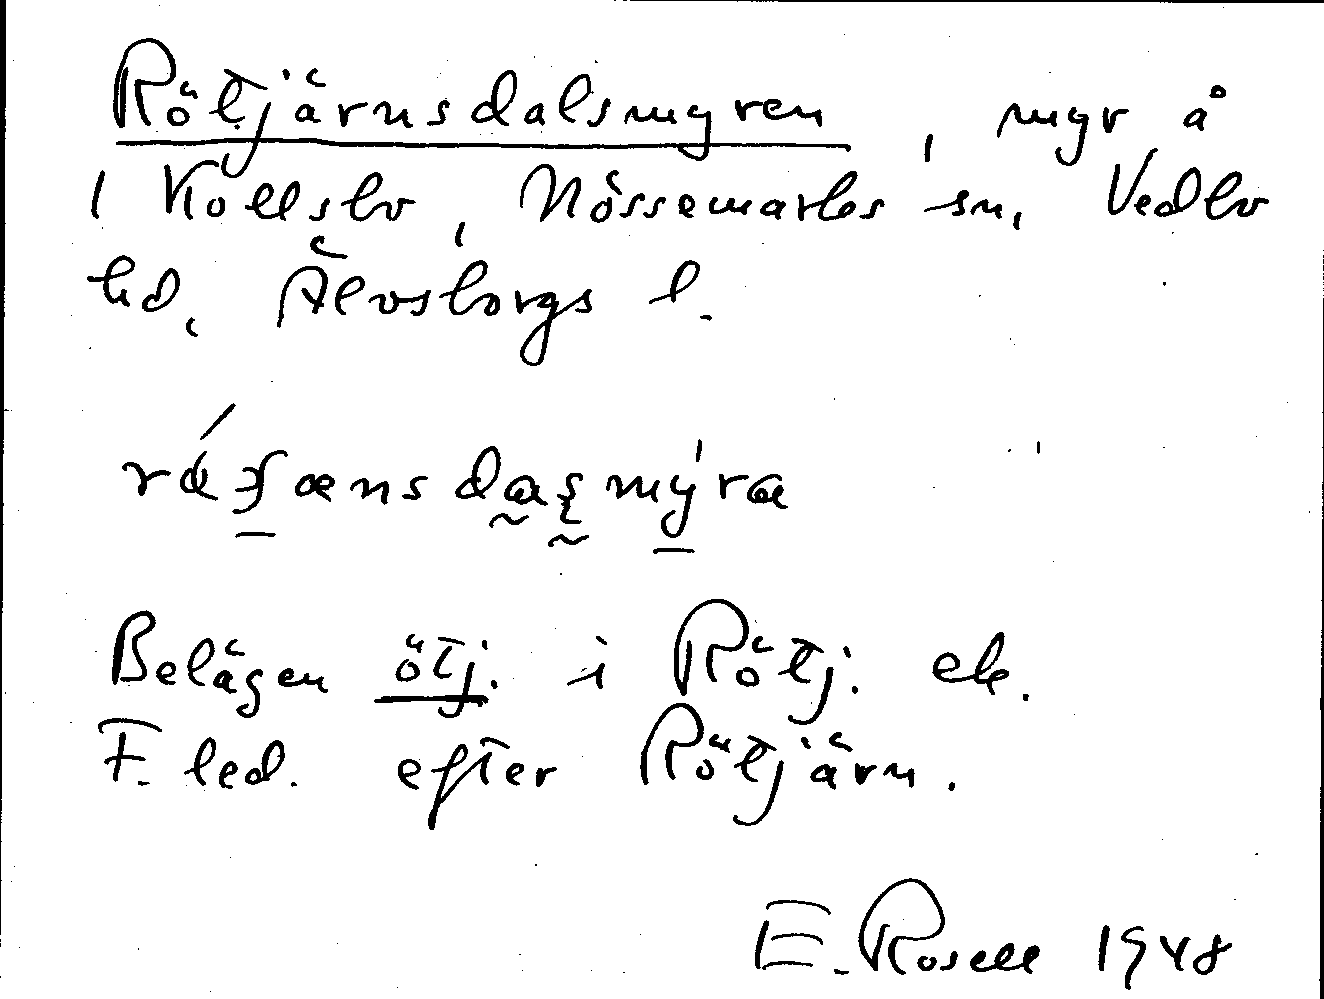 Rötjärnsdalsmyren, myr å
1 Köllsbo, Nössemarks sn, Vedbo
hd, Älvsborgs l.
Belägen ötj. i Rötj. ek.
F. led. efter Rötjärn.
E. Rosell 1948